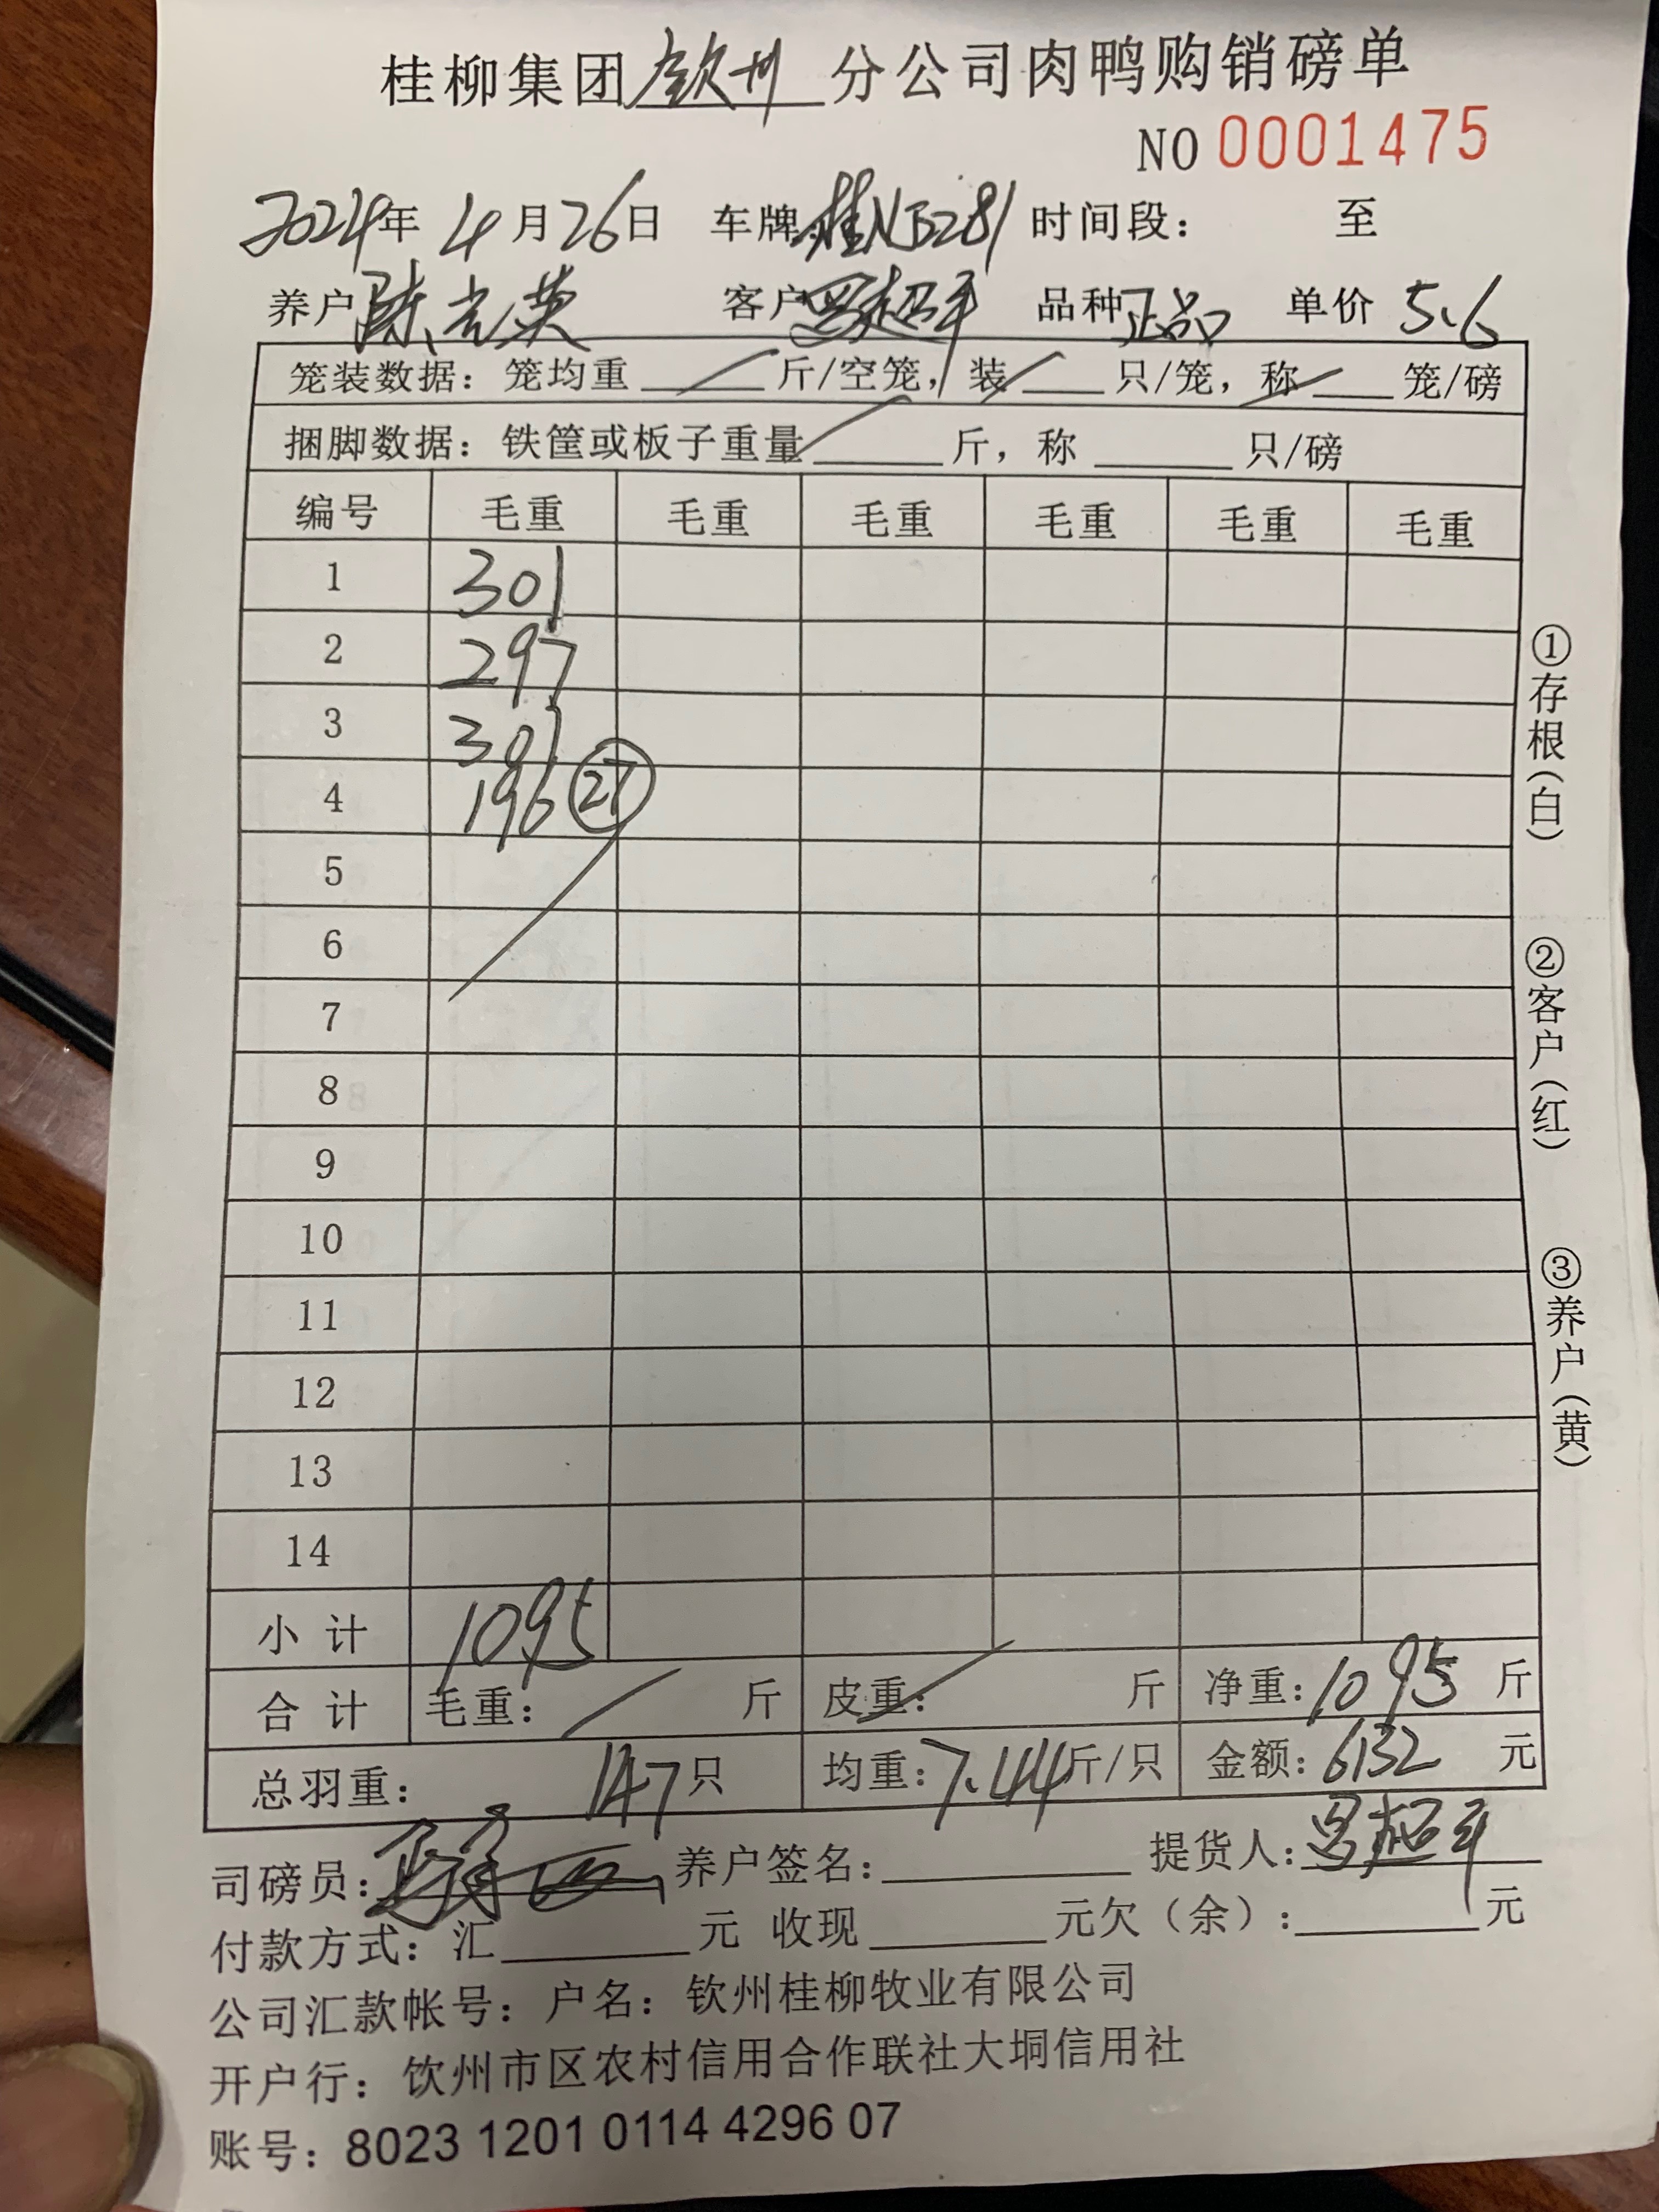 桂柳集团钦州分公司肉鸭购销磅单
NO 0001475
2024年 4月26日 车牌:桂NB281 时间段： 至
养户 陈光英 客户 罗超平 品种 正品 单价 5.6
笼装数据：笼均重 斤/空笼，装 只/笼，称 笼/磅
捆脚数据：铁筐或板子重量 斤，称 只/磅
编号 毛重 毛重 毛重 毛重 毛重 毛重
1 301
2 297
3 301
4 196 27
5
6
7
8
9
10
11
12
13
14
小计 1095
合计 毛重： 斤 皮重： 斤 净重：1095 斤
总羽重： 147只 均重：7.44斤/只 金额：6132 元
司磅员： 养户签名： 提货人：罗超平
付款方式：汇 元 收现 元欠（余）： 元
公司汇款帐号：户名：钦州桂柳牧业有限公司
开户行：钦州市区农村信用合作联社大垌信用社
账号：8023 1201 0114 4296 07
①存根（白）
②客户（红）
③养户（黄）